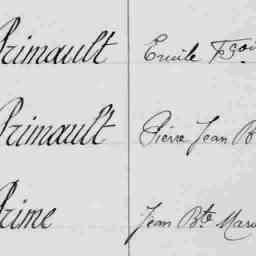 Primault Emile Fçois
Primault Pierre Jean B
Prime Jean Bte Marie